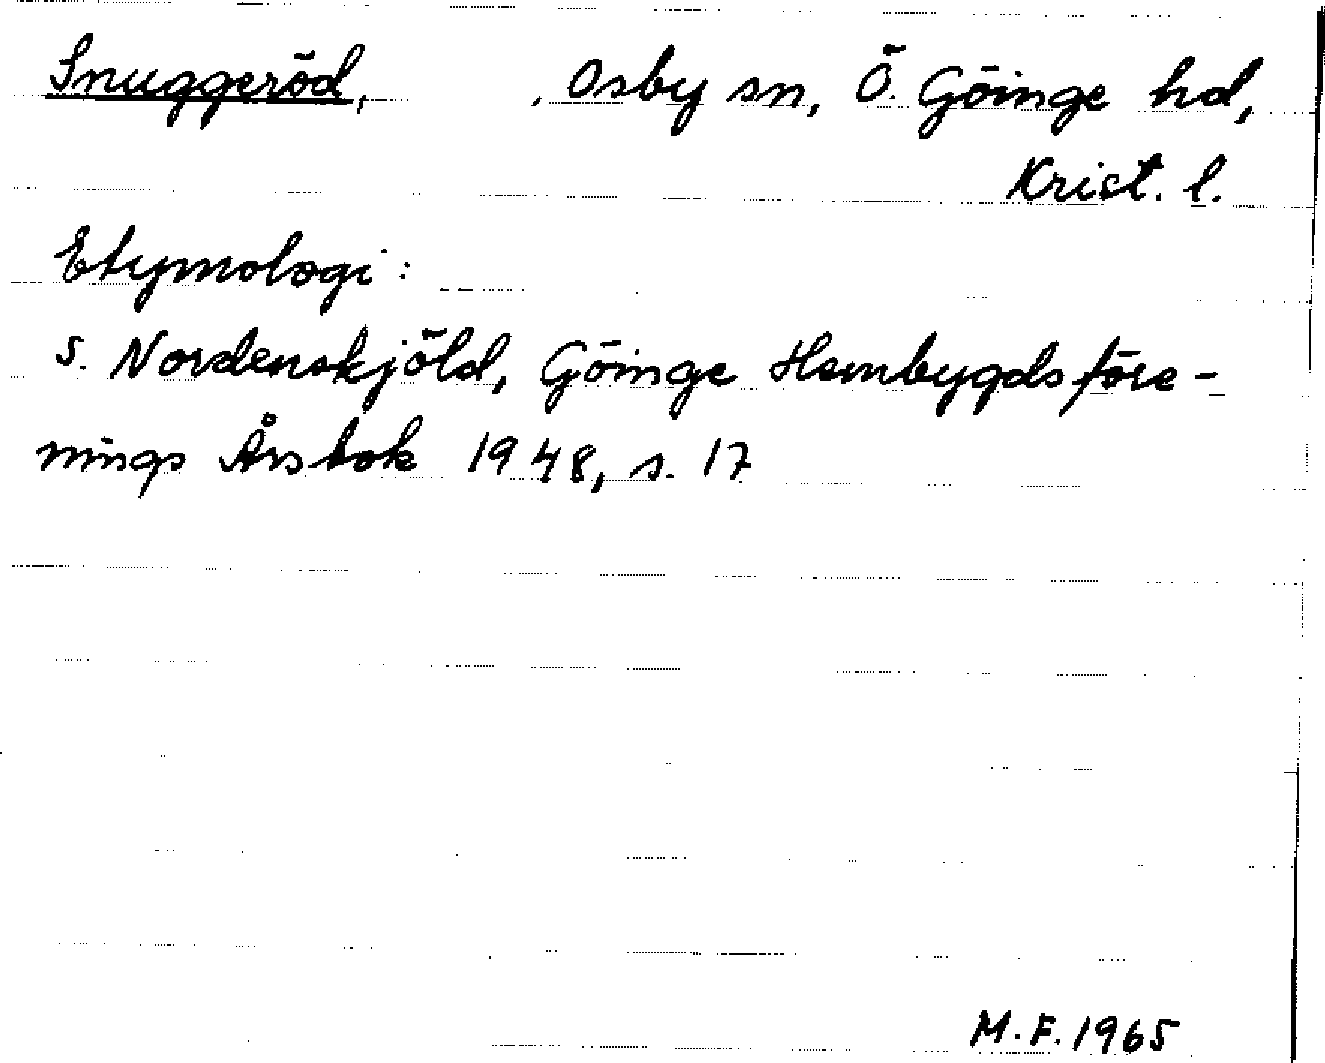 Snuggeröd, , Osby sn, Ö. Göinge hd,
Krist. l.
Etymologi:
S. Nordenskjöld, Göinge Hembygdsföre-
nings Årsbok 1948, s. 17
M.F. 1965